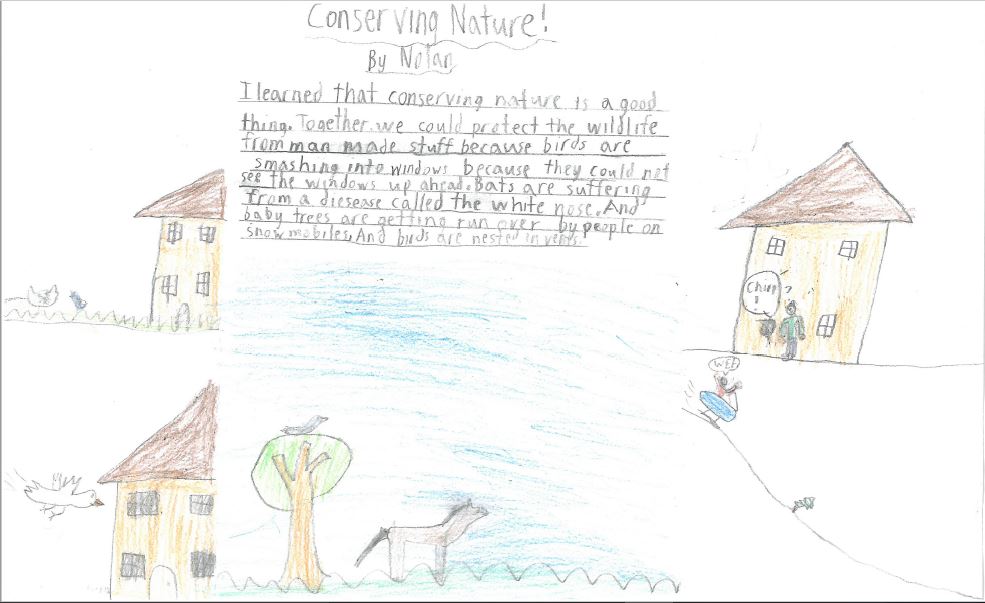 Conserving Nature!
By Nolan
I learned that conserving nature is a good
thing. Together we could protect the wildlife
from man made stuff because birds are
smashing into windows because they could not
see the windows up ahead. Bats are suffering
from a diesease called the white nose. And
baby trees are getting run over by people on
snow mobiles. And birds are nested in vents.
Chirp
!
?
WEE